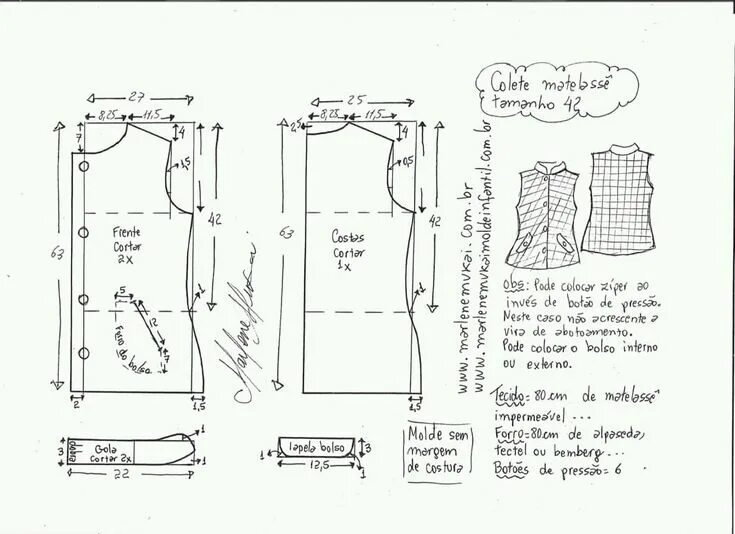 Colete matelassê
tamanho 42
27
8,25 11,5
7
4
1,5
63
42
Frente
Cortar
2x
5
12
7
Forro do bolso
1
2
1,5
25
8,25 11,5
2,5
4
0,5
63
42
Costas
Cortar
1x
1
1,5
Marlene Mukai
www.marlenemukai.com.br
www.marlenemukaimoldeinfantil.com.br
Obs: Pode colocar zíper ao
invés de botão de pressão.
Neste caso não acrescente a
vira de abotoamento.
Pode colocar o bolso interno
ou externo.
Tecido= 80cm de matelassê
impermeável ...
Forro=80cm de alpaseda,
tectel ou bemberg ...
Botões de pressão= 6
3
Gola
cortar 2x
1
1
22
lapela bolso
3
12,5
1
1
Molde sem
margem
de costura